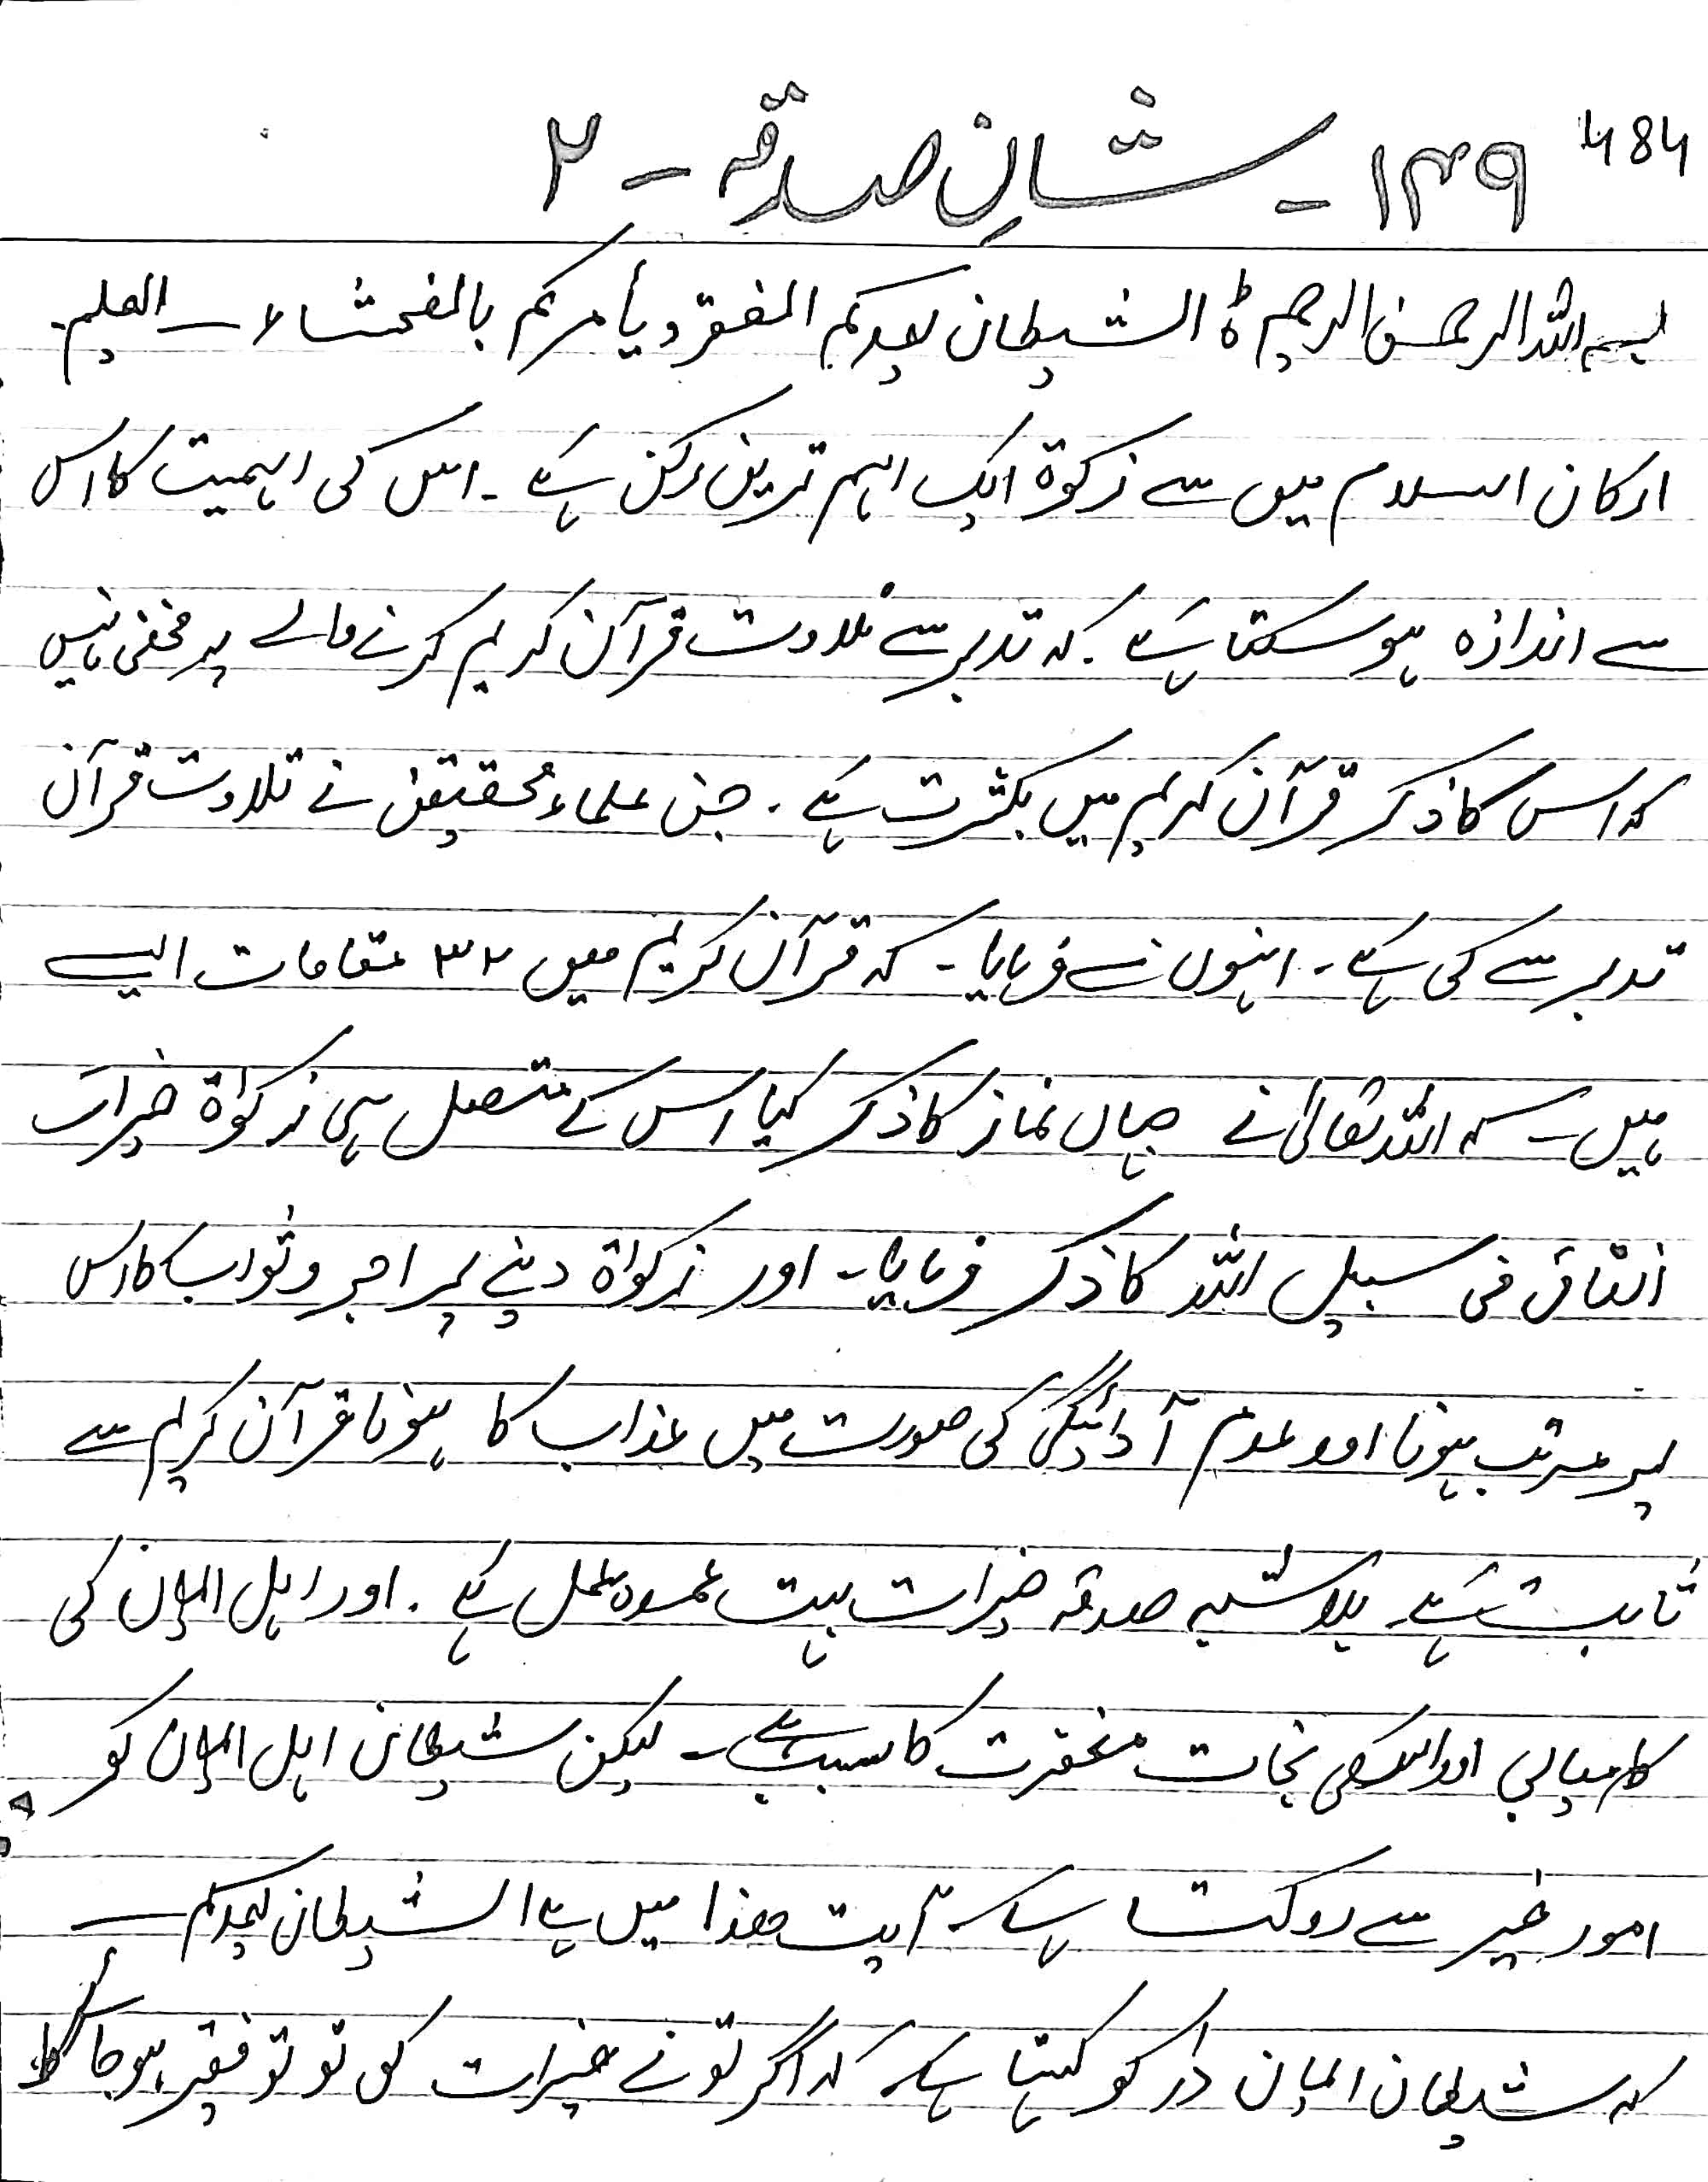 484
۱۴۹ - شانِ صدقہ - ۲
بسم اللہ الرحمن الرحیم ہ الشیطان یعدکم الفقر و یأمرکم بالفحشاء — العلیم۔
ارکان اسلام میں سے زکوۃ ایک اہم ترین رکن ہے۔ اس کی اہمیت کا اس
سے اندازہ ہو سکتا ہے۔ کہ تدبر سے تلاوت قرآن کریم کرنے والے پر مخفی نہیں
کہ اس کا ذکر قرآن کریم میں بکثرت ہے۔ جن علماء محققین نے تلاوت قرآن
تدبر سے کی ہے۔ انہوں نے فرمایا۔ کہ قرآن کریم میں ۳۲ مقامات ایسے
ہیں۔ کہ اللہ تعالیٰ نے جہاں نماز کا ذکر کیا اس کے متصل ہی زکواۃ خیرات
انفاق فی سبیل اللہ کا ذکر فرمایا۔ اور زکواۃ دینے پر اجر و ثواب کا اس
پر مرتب ہونا اور عدم آدائیگی کی صورت میں عذاب کا ہونا قرآن کریم سے
ثابت ہے۔ بلا شبہ صدقہ خیرات بہت عمدہ عمل ہے۔ اور اہل ایمان کی
کامیابی اور اسکی نجات مغفرت کا سبب ہے۔ لیکن شیطان اہل ایمان کو
امور خیر سے روکتا ہے۔ آیت ھذا میں ہے الشیطان یعدکم —
کہ شیطان ایمان دار کو کہتا ہے۔ کہ اگر تو نے خیرات کی تو تو فقیر ہو جائے گا